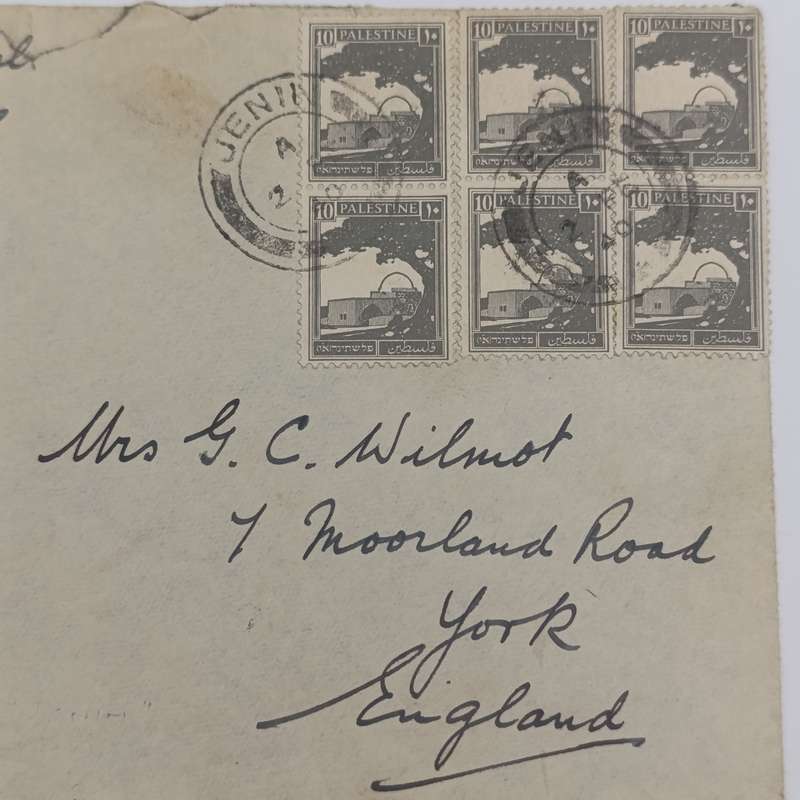 10 PALESTINE ١٠
פלשתינה (א״י) فلسطين
10 PALESTINE ١٠
פלשתינה (א״י) فلسطين
10 PALESTINE ١٠
פלשתינה (א״י) فلسطين
10 PALESTINE ١٠
פלשתינה (א״י) فلسطين
10 PALESTINE ١٠
פלשתינה (א״י) فلسطين
10 PALESTINE ١٠
פלשתינה (א״י) فلسطين
JENIN
A
2
JENIN
A
2
40
Mrs G. C. Wilmot
7 Moorland Road
York
England